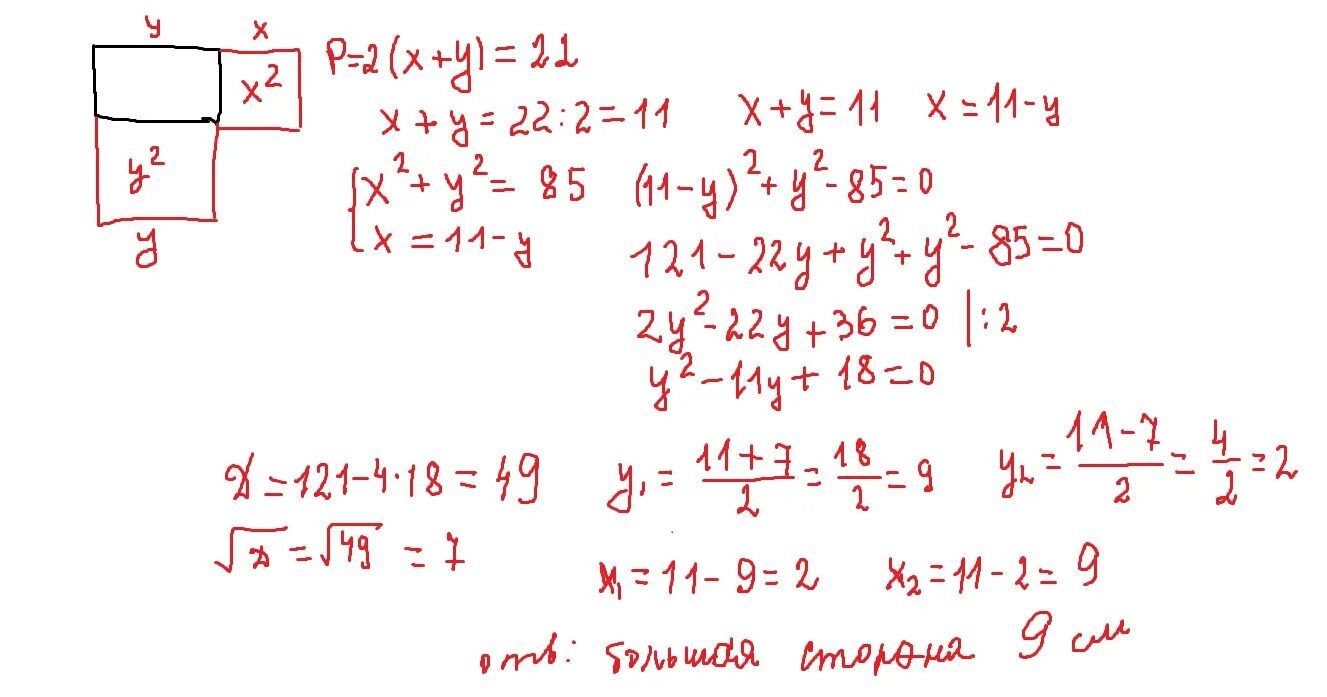 y x
x²
y²
y
P=2(x+y)=22
x+y=22:2=11 x+y=11 x=11-y
{x²+y²=85 (11-y)²+y²-85=0
x=11-y
121-22y+y²+y²-85=0
2y²-22y+36=0 |:2
y²-11y+18=0
D=121-4·18=49 y₁=(11+7)/2=18/2=9 y₂=(11-7)/2=4/2=2
√D=√49=7
x₁=11-9=2 x₂=11-2=9
отв: большая сторона 9 см